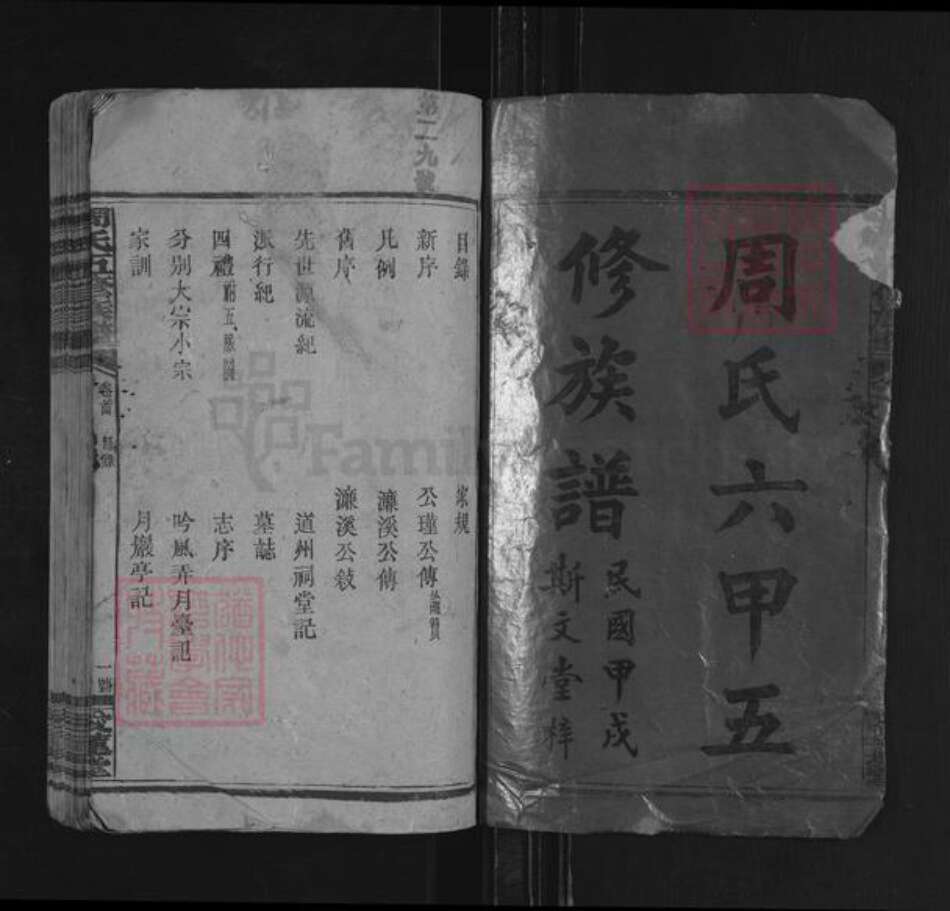 周氏六甲五
修族譜
民國甲戌
斯文堂梓
第二九號
目錄
新序
凡例
舊序
先世源流紀
派行紀
四禮附五服圖
分別大宗小宗
家訓
家規
公瑾公傳
濂溪公傳
濂溪公敍
道州祠堂記
墓誌
志序
吟風弄月臺記
月巖亭記
周氏五修族譜
卷首
目錄
一
愛蓮堂
FamilySearch